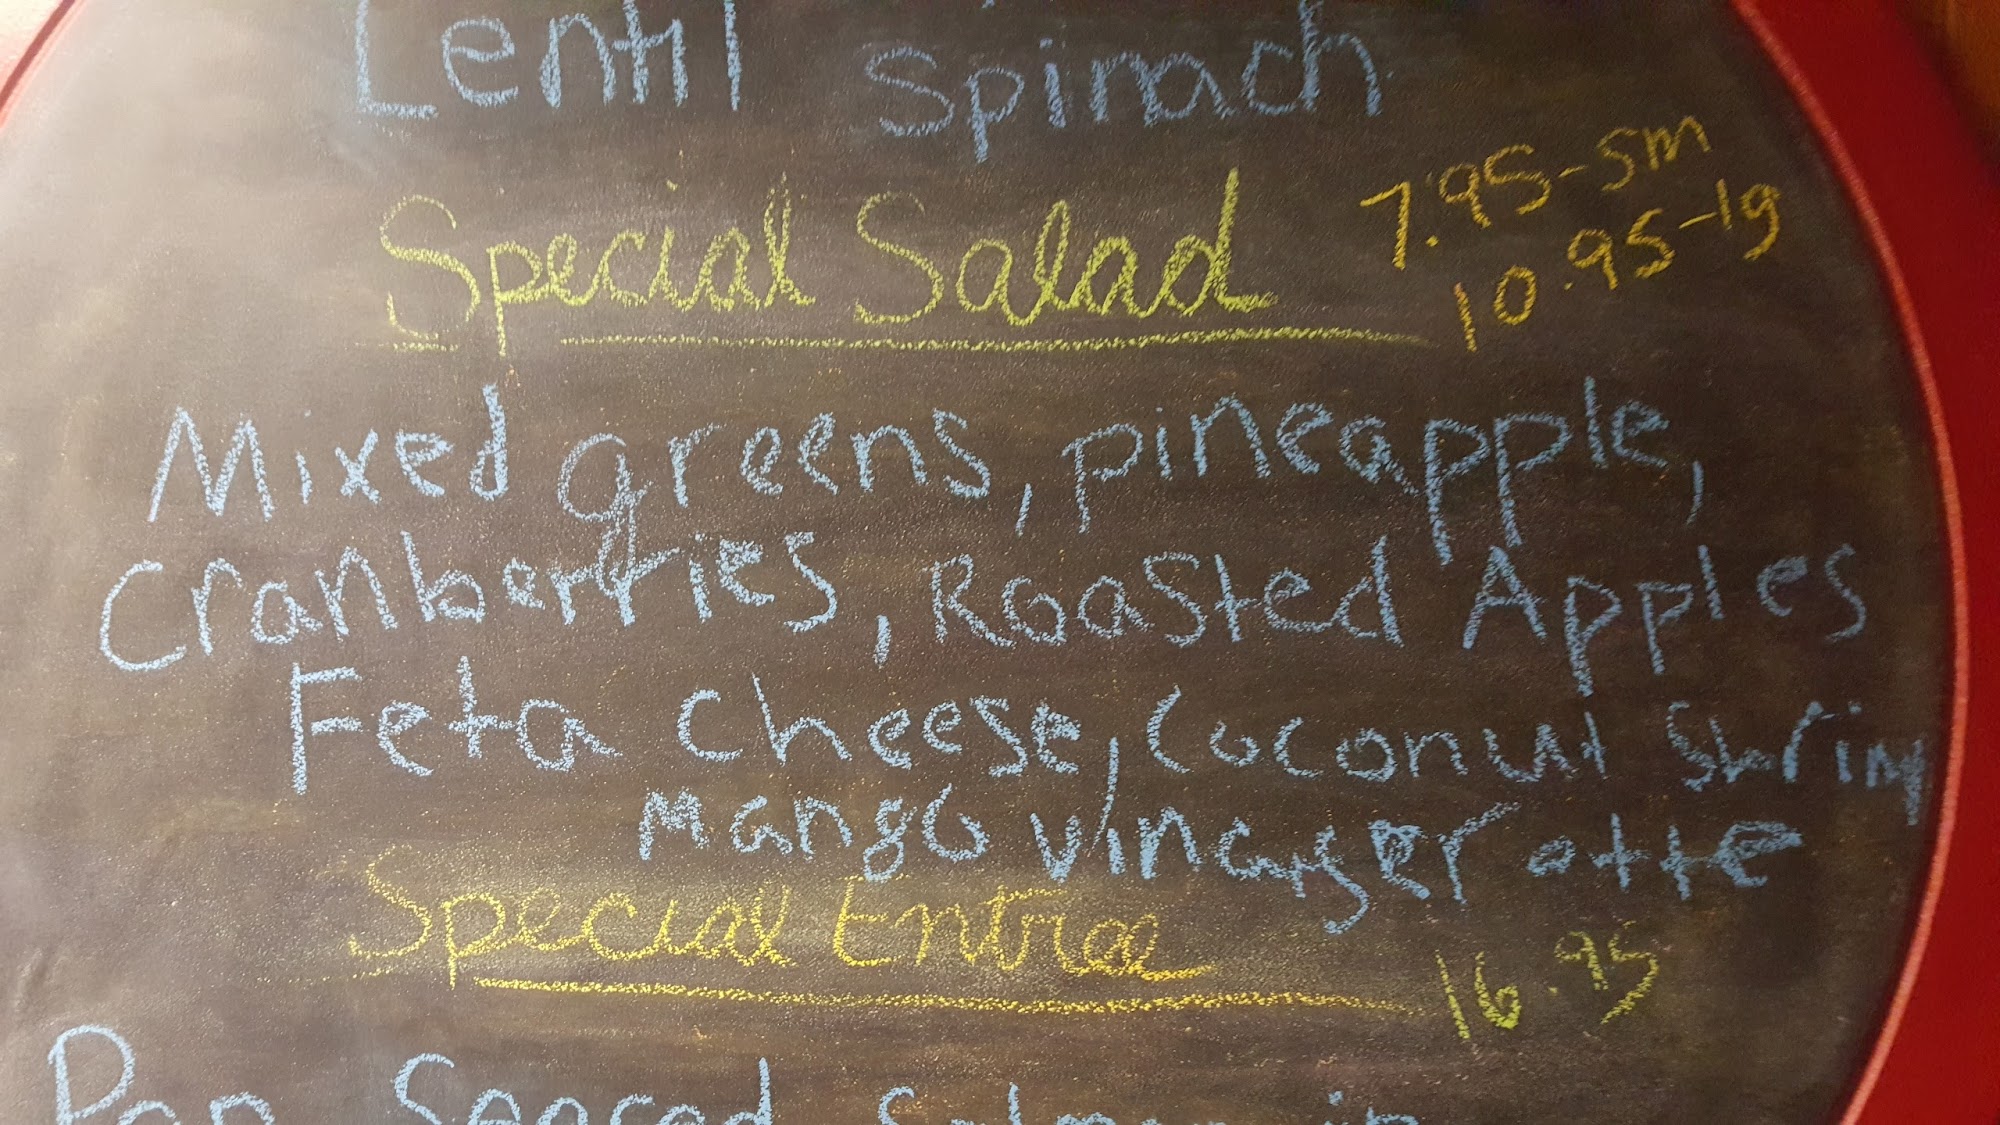 Lentil Spinach
Special Salad 7.95-sm
10.95-lg
Mixed greens, pineapple,
Cranberries, Roasted Apples
Feta Cheese, Coconut Shrimp
Mango Vinaigerotte
Special Entree 16.95
Pan Seared Salmon in